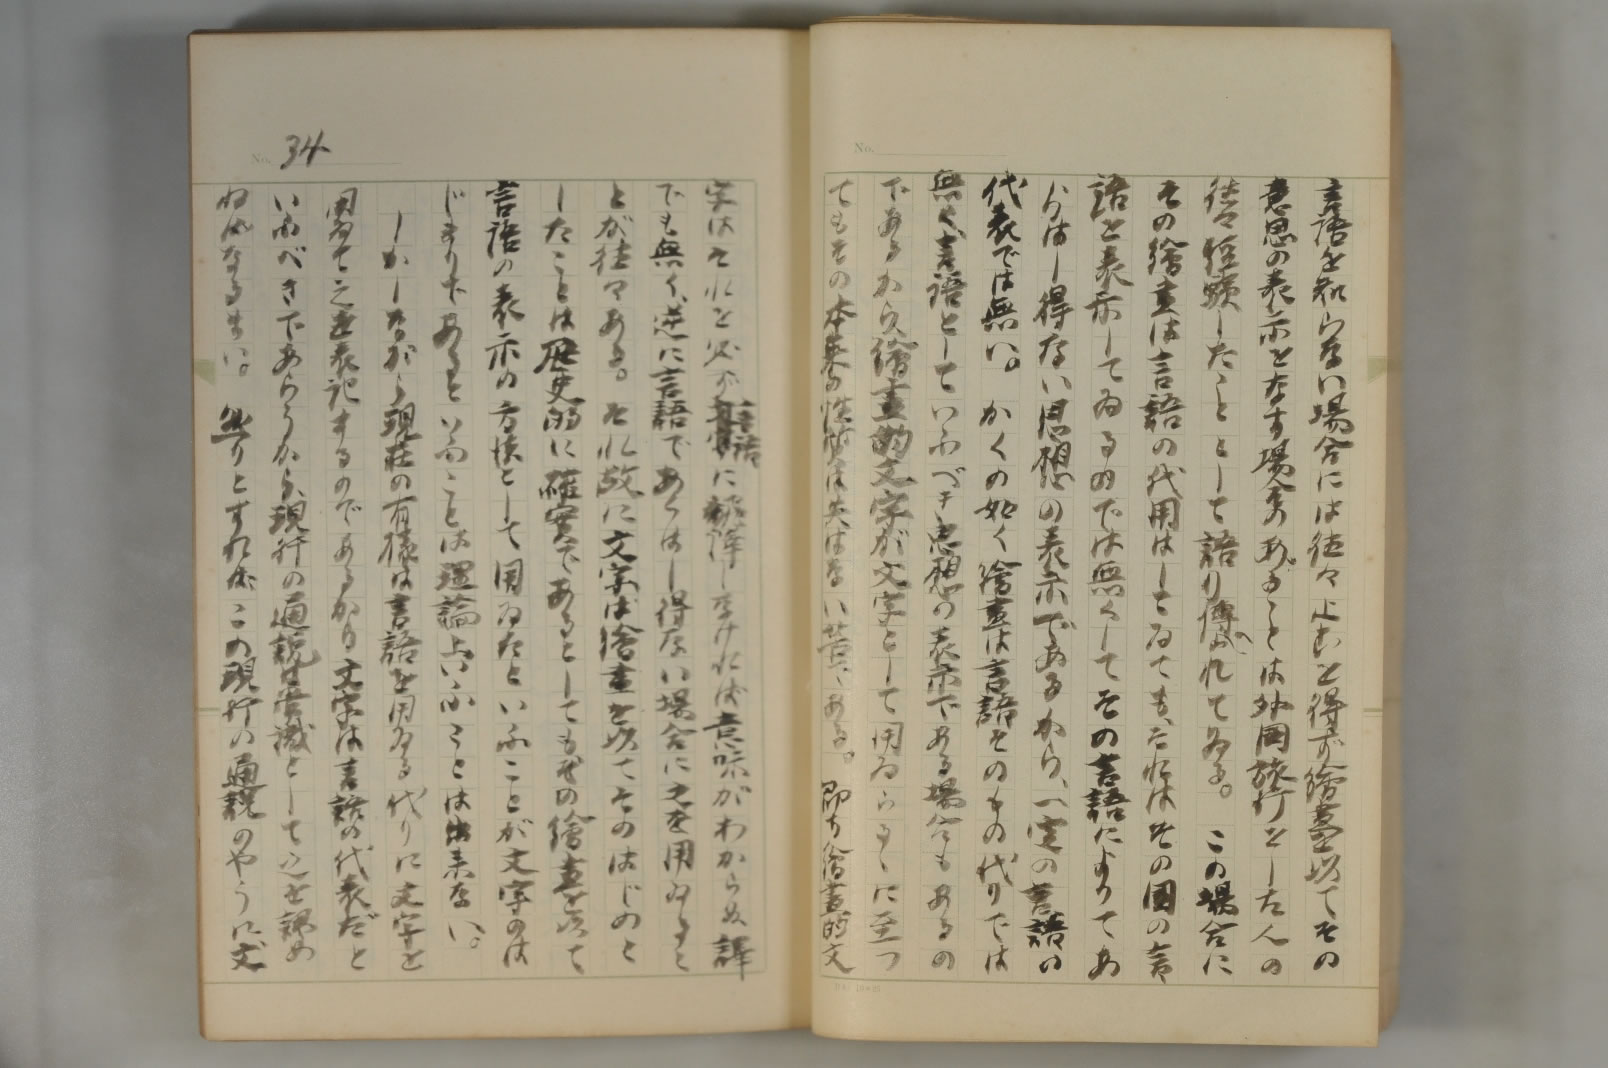 No.
言語を知らない場合には往々止むを得ず繪畫を以てその
意思の表示をなす場合のあることは外国旅行をした人の
往々経験したこととして語り傳へられてゐる。この場合に
その繪畫は言語の代用はしてゐても、それはその国の言
語を表示してゐるのでは無くしてその言語によりてあ
らはし得ない思想の表示であるから、一定の言語の
代表では無い。かくの如く繪畫は言語そのものの代りでは
無く、言語としていふべき思想の表示である場合もあるの
であるから繪畫的文字が文字として用ゐらるゝに至つ
てもその本来の性質は失はない筈である。即ち繪畫的文
No. 34
字はそれを必ず言語に翻譯しなければ意味がわからぬ譯
でも無く、逆に言語であらはし得ない場合に之を用ゐるこ
とが往々ある。それ故に文字は繪畫を以てそのはじめと
したことは歴史的に確実であるとしてもその繪畫を以て
言語の表示の方法として用ゐたといふことが文字のは
じまりであるといふことは理論上いふことは出来ない。
しかしながら現在の有様は言語を用ゐる代りに文字を
用ゐて之を表記するのであるから文字は言語の代表だと
いふべきであらうから、現行の通説は常識として之を認め
ねばなるまい。然りとすればこの現行の通説のやうに文